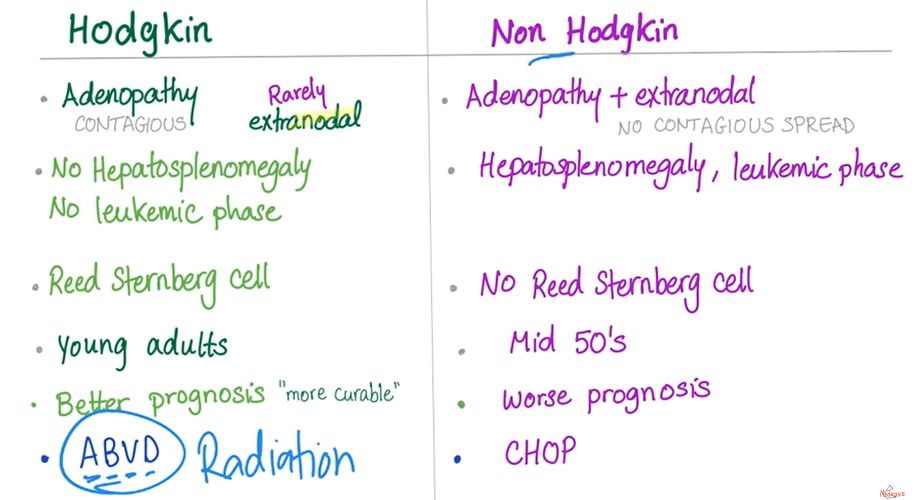 Hodgkin
Non Hodgkin
Adenopathy
CONTAGIOUS
Rarely
extranodal
Adenopathy + extranodal
NO CONTAGIOUS SPREAD
No Hepatosplenomegaly
No leukemic phase
Hepatosplenomegaly, leukemic phase
Reed Sternberg cell
No Reed Sternberg cell
Young adults
Mid 50's
Better prognosis "more curable"
Worse prognosis
ABVD Radiation
CHOP